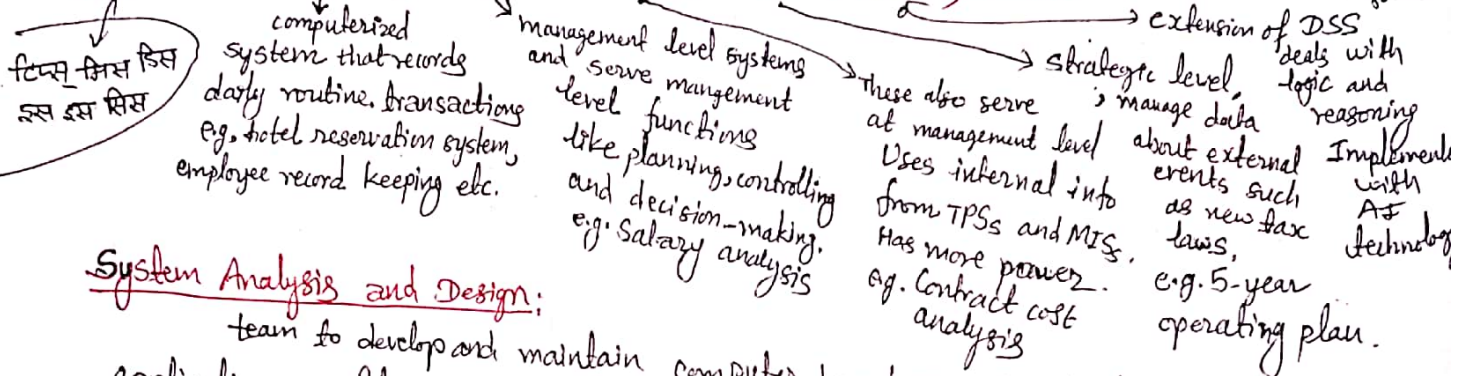 टिप्स मिस डिस
इस इस सिस
computerized
system that records
daily routine. transactions
e.g. hotel reservation system,
employee record keeping etc.
management level systems
and serve mangement
level functions
like planning, controlling
and decision-making.
e.g. Salary analysis
These also serve
at management level
Uses internal info
from TPSs and MISs.
Has more power.
eg. Contract cost
analysis
strategic level,
; manage data
about external
events such
as new tax
laws,
e.g. 5-year
operating plan.
extension of DSS
deals with
logic and
reasoning
Implemente
with
AI
technolog
System Analysis and Design:
team to develop and maintain